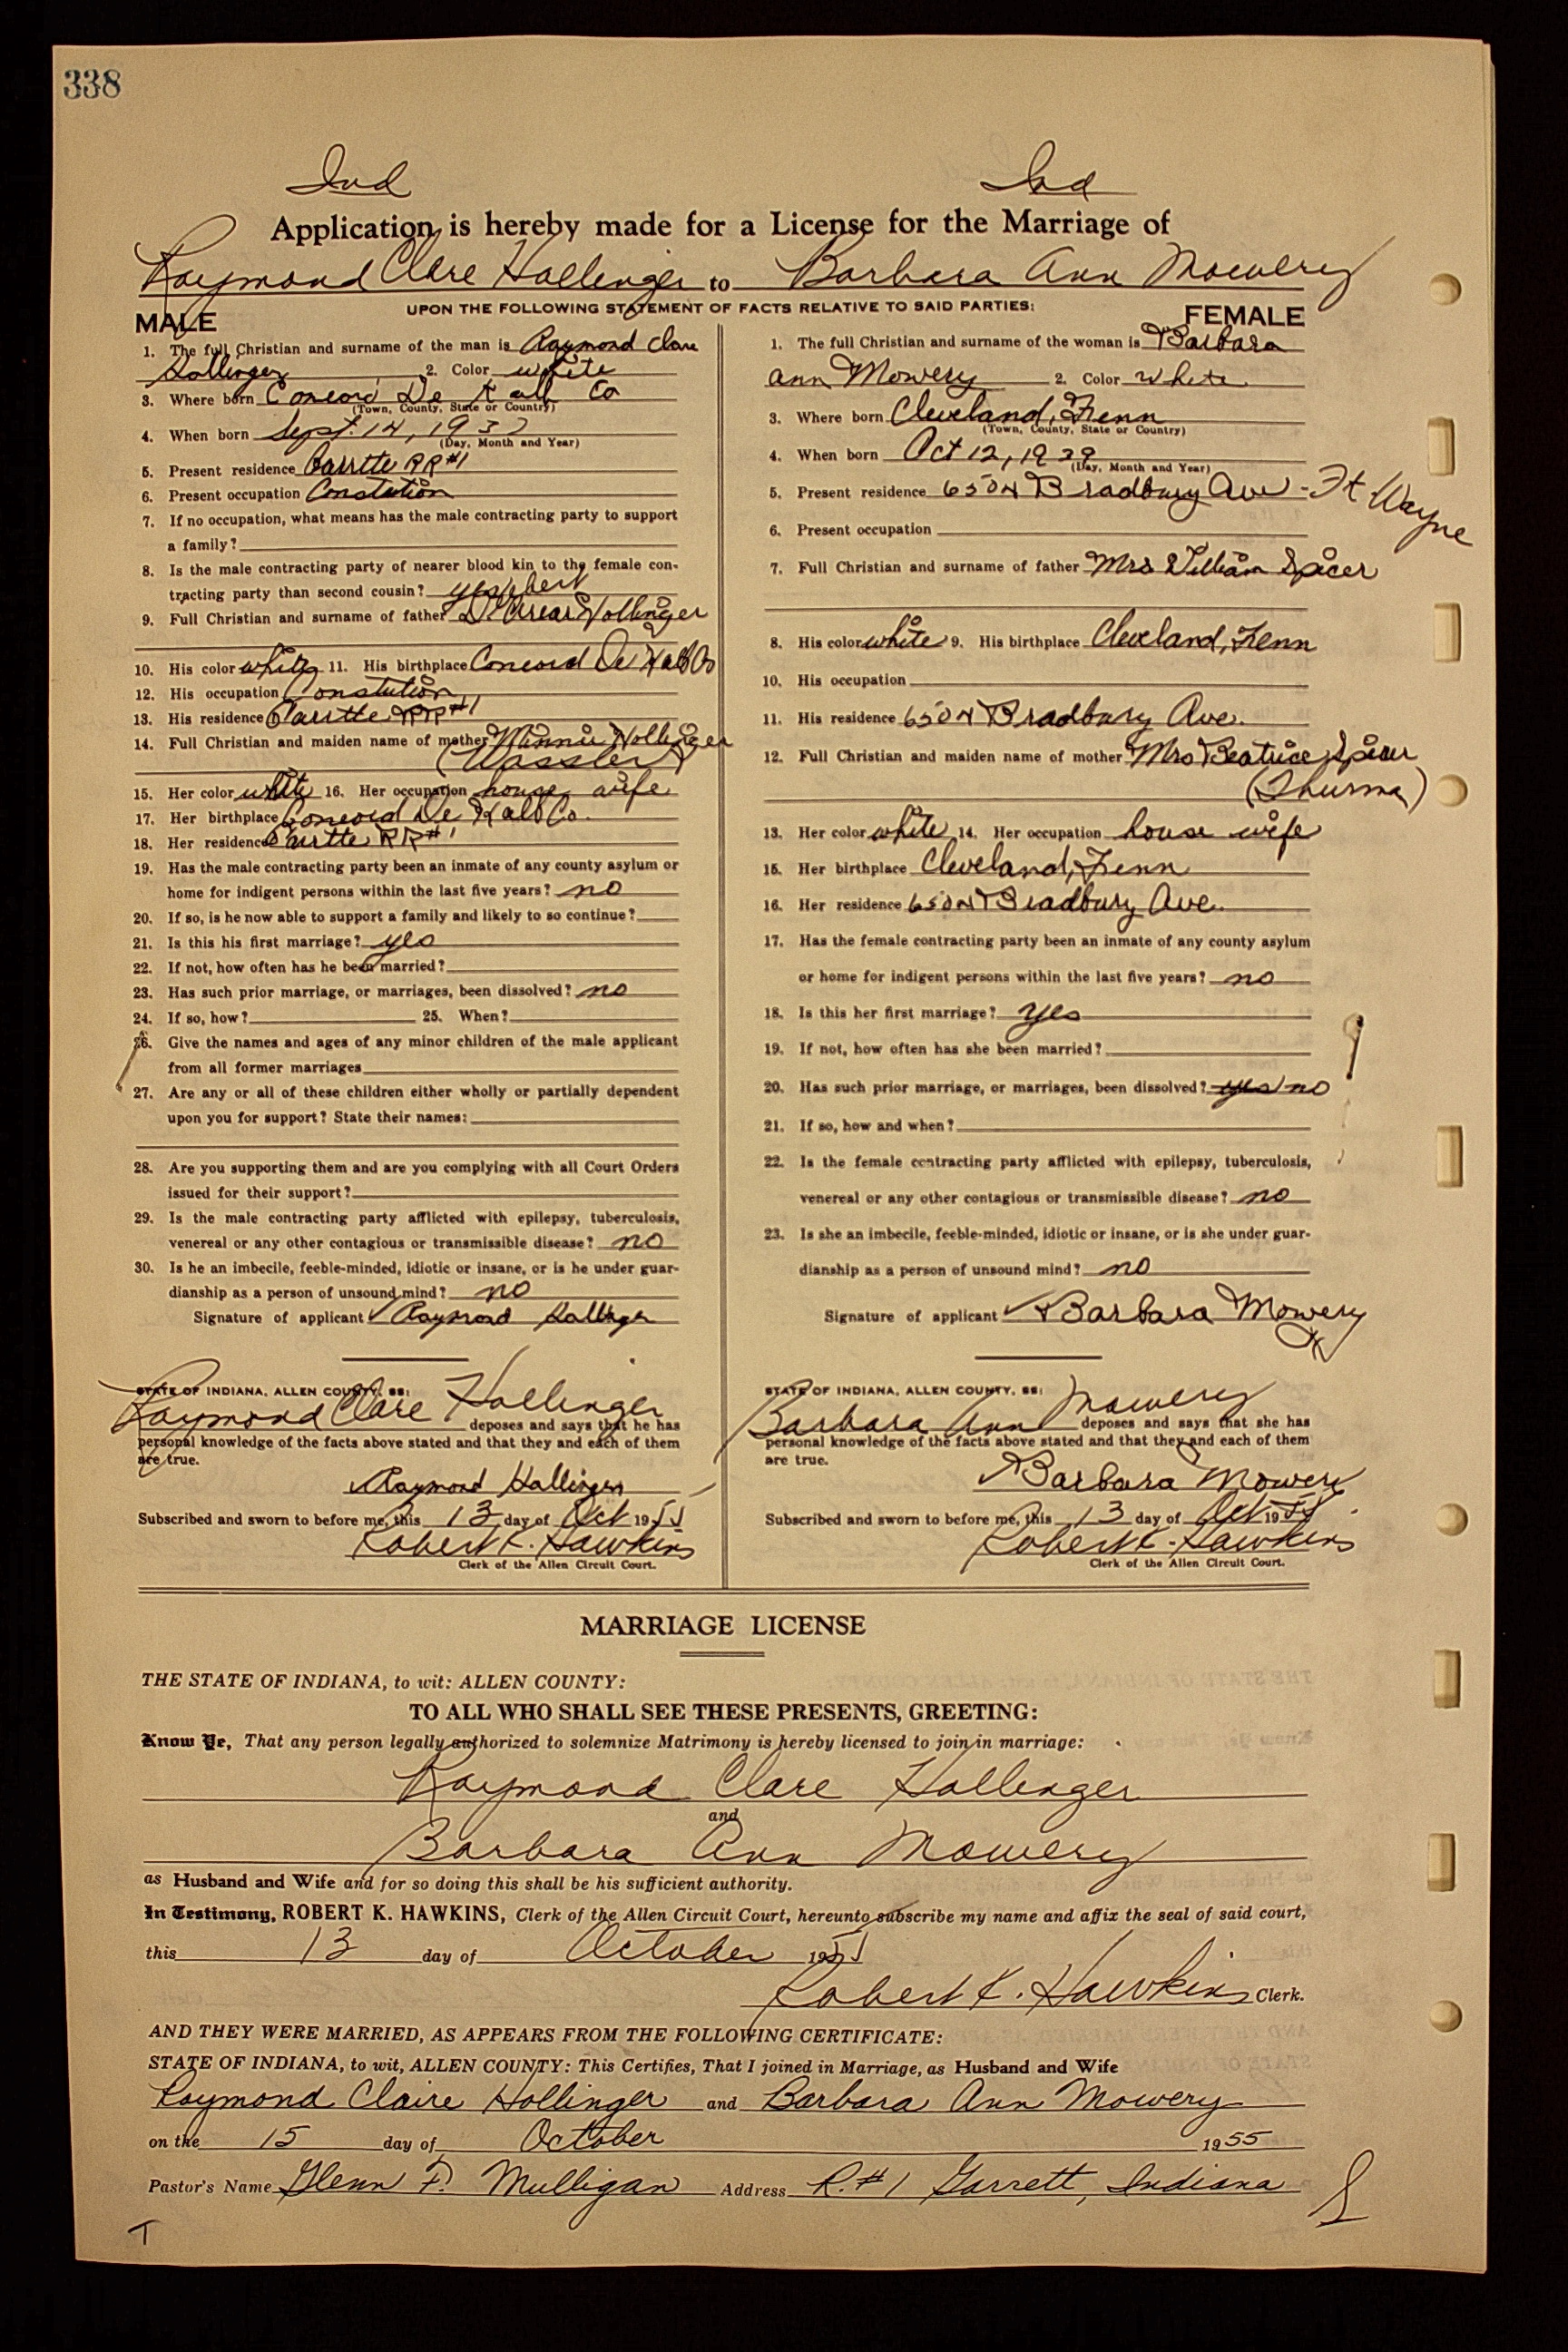 338
Ind Ind
Application is hereby made for a License for the Marriage of
Raymond Clare Hollinger to Barbara Ann Mowery
UPON THE FOLLOWING STATEMENT OF FACTS RELATIVE TO SAID PARTIES:
MALE
1. The full Christian and surname of the man is Raymond Clare
Hollinger 2. Color white
3. Where born Concord De Kalb Co
(Town, County, State or Country)
4. When born Sept. 14, 193
(Day, Month and Year)
5. Present residence RR#1
6. Present occupation Constution
7. If no occupation, what means has the male contracting party to support
a family?
8. Is the male contracting party of nearer blood kin to the female con-
tracting party than second cousin?
9. Full Christian and surname of father Hollinger
10. His color white 11. His birthplace Concord De Kalb Co
12. His occupation Constution
13. His residence RR#1
14. Full Christian and maiden name of mother Minnie Hollinger
(Wassler)
15. Her color white 16. Her occupation house wife
17. Her birthplace Concord De Kalb Co.
18. Her residence RR#1
19. Has the male contracting party been an inmate of any county asylum or
home for indigent persons within the last five years? no
20. If so, is he now able to support a family and likely to so continue?
21. Is this his first marriage? yes
22. If not, how often has he been married?
23. Has such prior marriage, or marriages, been dissolved? no
24. If so, how? 25. When?
26. Give the names and ages of any minor children of the male applicant
from all former marriages
27. Are any or all of these children either wholly or partially dependent
upon you for support? State their names:
28. Are you supporting them and are you complying with all Court Orders
issued for their support?
29. Is the male contracting party afflicted with epilepsy, tuberculosis,
venereal or any other contagious or transmissible disease? no
30. Is he an imbecile, feeble-minded, idiotic or insane, or is he under guar-
dianship as a person of unsound mind? no
Signature of applicant Raymond Hollinger
STATE OF INDIANA, ALLEN COUNTY, SS:
Raymond Clare Hollinger deposes and says that he has
personal knowledge of the facts above stated and that they and each of them
are true.
Raymond Hollinger
Subscribed and sworn to before me, this 13 day of Oct 1955
Robert K. Hawkins
Clerk of the Allen Circuit Court.
FEMALE
1. The full Christian and surname of the woman is Barbara
Ann Mowery 2. Color White
3. Where born Cleveland, Tenn
(Town, County, State or Country)
4. When born Oct 12, 1939
(Day, Month and Year)
5. Present residence 6504 Bradbury Ave - Ft Wayne
6. Present occupation
7. Full Christian and surname of father Mrs William Spicer
8. His color white 9. His birthplace Cleveland, Tenn
10. His occupation
11. His residence 6504 Bradbury Ave.
12. Full Christian and maiden name of mother Mrs Beatrice Spicer
(Thurma)
13. Her color white 14. Her occupation house wife
15. Her birthplace Cleveland, Tenn
16. Her residence 6504 Bradbury Ave.
17. Has the female contracting party been an inmate of any county asylum
or home for indigent persons within the last five years? no
18. Is this her first marriage? yes
19. If not, how often has she been married?
20. Has such prior marriage, or marriages, been dissolved? yes no
21. If so, how and when?
22. Is the female contracting party afflicted with epilepsy, tuberculosis,
venereal or any other contagious or transmissible disease? no
23. Is she an imbecile, feeble-minded, idiotic or insane, or is she under guar-
dianship as a person of unsound mind? no
Signature of applicant Barbara Mowery
STATE OF INDIANA, ALLEN COUNTY, SS:
Barbara Ann Mowery deposes and says that she has
personal knowledge of the facts above stated and that they and each of them
are true.
Barbara Mowery
Subscribed and sworn to before me, this 13 day of Oct 1955
Robert K. Hawkins
Clerk of the Allen Circuit Court.
MARRIAGE LICENSE
THE STATE OF INDIANA, to wit: ALLEN COUNTY:
TO ALL WHO SHALL SEE THESE PRESENTS, GREETING:
Know Ye, That any person legally authorized to solemnize Matrimony is hereby licensed to join in marriage:
Raymond Clare Hollinger
and
Barbara Ann Mowery
as Husband and Wife and for so doing this shall be his sufficient authority.
In Testimony, ROBERT K. HAWKINS, Clerk of the Allen Circuit Court, hereunto subscribe my name and affix the seal of said court,
this 13 day of October 1955
Robert K. Hawkins Clerk.
AND THEY WERE MARRIED, AS APPEARS FROM THE FOLLOWING CERTIFICATE:
STATE OF INDIANA, to wit, ALLEN COUNTY: This Certifies, That I joined in Marriage, as Husband and Wife
Raymond Claire Hollinger and Barbara Ann Mowery
on the 15 day of October 1955
Pastor's Name Glenn F. Mulligan Address R.#1 Garrett, Indiana
T